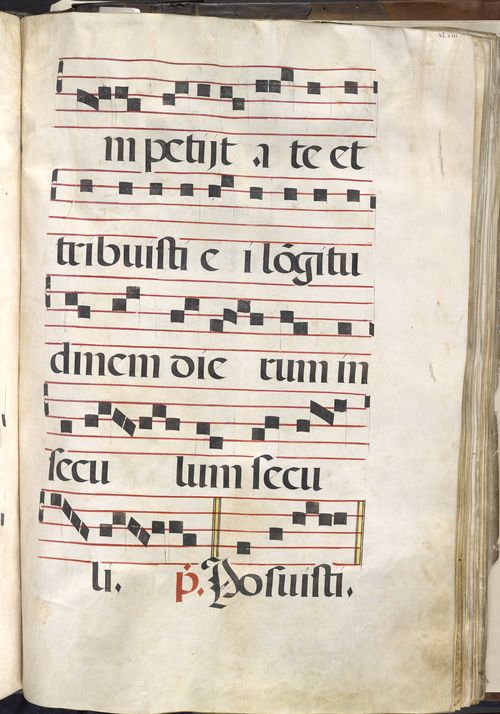 xlviii
m petijt a te et
tribuisti e i lōgitu
dinem die rum in
secu lum secu
li. p̄. Posuisti.